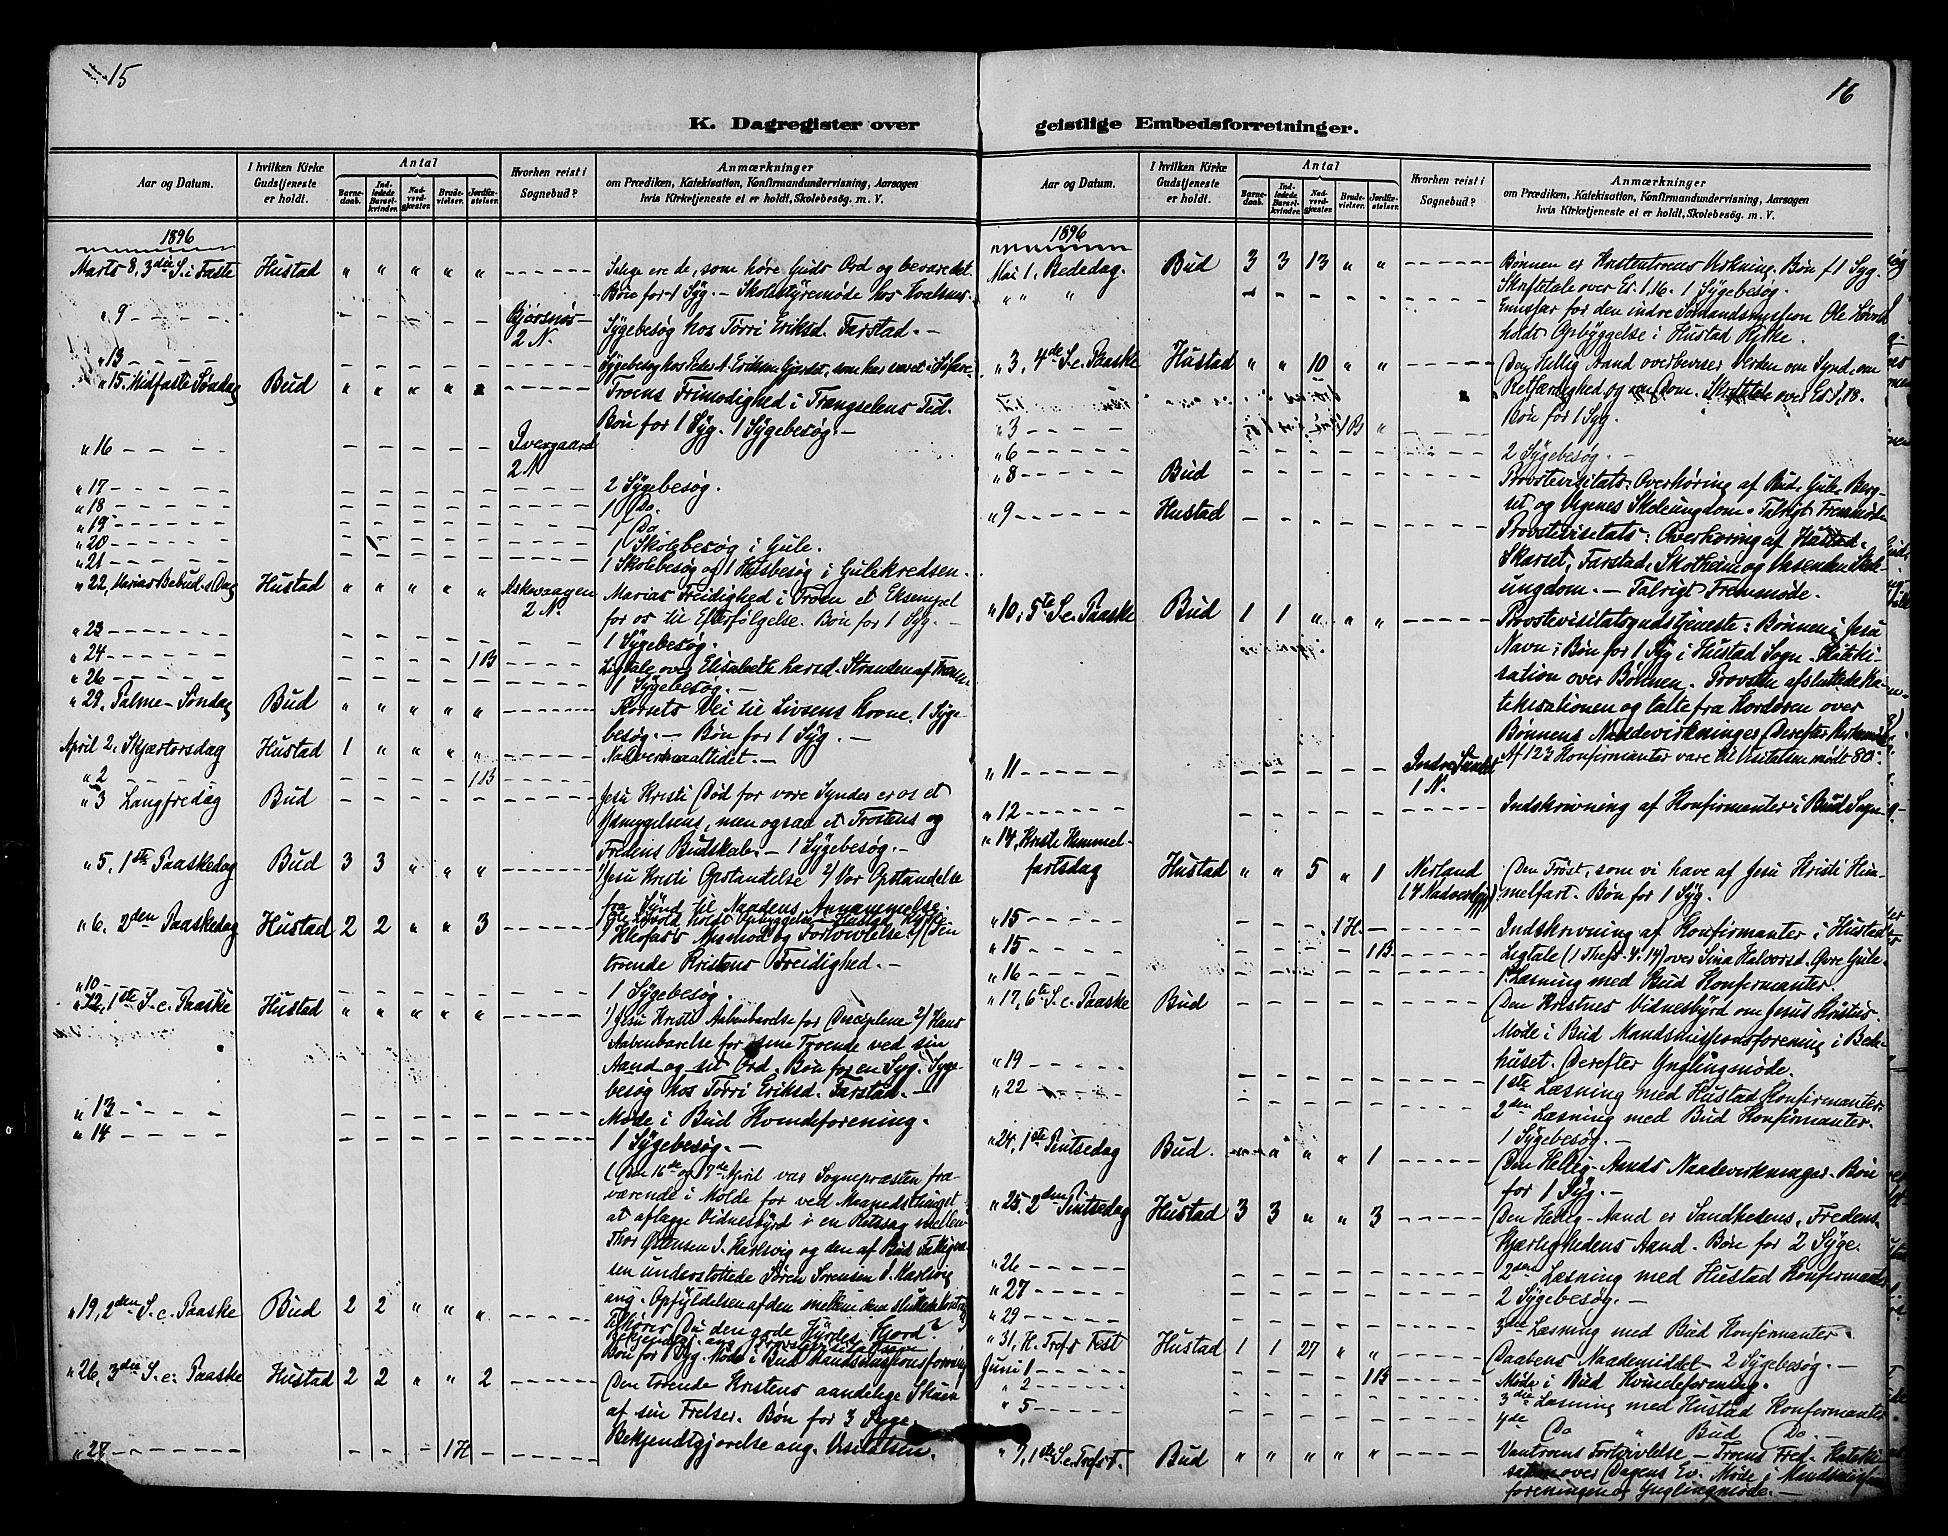 15
K. Dagregister over
Aar og Datum.
I hvilken Kirke Gudstjeneste er holdt.
Antal
Barne-daab.
Ind-ledede Barsel-kvinder.
Nad-verd-gjæster.
Brude-vielser.
Jordfæ-stelser.
Hvorhen reist i Sognebud?
Anmærkninger
om Prædiken, Katekisation, Konfirmandundervisning, Aarsagen
hvis Kirketjeneste ei er holdt, Skolebesøg. m. V.
1896
Marts 8, 3die S. i Faste Hustad " " " " " Salige ere de, som høre Guds Ord og bevare det.
Bøn for 1 Syg. - Skolestyremøde hos
" 9 Bjørsnøs 2 N. Sygebesøg hos Tørri Eriksd. Farstad. -
" 13 Sygebesøg hos Peder A. Eriksen Gjerdet, som har været i
" 15. Midfaste Søndag Bud " " " " Troens Frimodighed i Trængselens Tid.
Bøn for 1 Syg. 1 Sygebesøg. -
" 16 2 N
" 17 2 Sygebesøg.
" 18 1 Do.
" 19 1 Do.
" 20 1 Skolebesøg i Gule.
" 21 1 Skolebesøg og 1 Husbesøg i Gulekredsen.
" 22, Marias Bebud. Dag Hustad " " " " " Askevaagen 2 N. Marias Freidighed i Troen et Eksempel
for os til Efterfølgelse. Bøn for 1 Syg. -
" 23 1 Sygebesøg.
" 24 1 B Ligtale over Elisabeth
" 26 1 Sygebesøg. -
" 29, Palme-Søndag Bud " " " " " Korsets Vei til Livsens Krone. 1 Syge-
besøg. - Bøn for 1 Syg. -
April 2. Skjærtorsdag Hustad 1 " " " " Nadvermaaltidet. -
" 2 1 B
" 3 Langfredag Bud Jesu Kristi Død for vore Synder er os et
Ydmygelsens, men ogsaa et Trøstens og
Fredens Budskab. - 1 Sygebesøg. -
" 5, 1ste Paaskedag Bud 3 3 " " " 1/ Jesu Kristi Opstandelse 2/ Vor Opstandelse
fra Synd til Naadens Annammelse.
" 6, 2den Paaskedag Hustad 2 2 " " 3 holdt Opbyggelse i Hustad Kirke
1/ Kleofas's Mismod og Fortvivlelse 2/ Den
troende Kristens Freidighed. -
" 10 1 Sygebesøg.
" 12, 1ste S. e. Paaske Hustad " " " " " 1/ Jesu Kristi Aabenbarelse for Disciplene 2/ Hans
Aabenbarelse for sine Troende ved sin
Aand og sit Ord. Bøn for en Syg. Syge-
besøg hos Tørri Eriksd. Farstad. -
" 13 Møde i Bud Kvindeforening.
" 14 1 Sygebesøg. -
(Den 16de og 17de April var Sognepræsten fra-
værende i Molde for ved Maanedsthinget
at aflægge Vidnesbyrd i en Retssag mellem
Thor Ostensen S. Harlsvig og den af Bud Fattigvæ-
sen understøttede Søren Sørensen S. Harlsvig
ang. Opfyldelsen af den mellem dem sluttede Kontrakt)
" 19, 2den S. e. Paaske Bud 2 2 " " " Tilhører Du den gode Hyrdes Hjord?
Bekjendtgj. ang. Provstevisitatsen
Bøn for 1 Syg. Møde i Bud Mandsmissionsforening
" 26, 3die S. e. Paaske Hustad 2 2 " " 2 Den troende Kristens aandelige Skuen
af sin Frelser. Bøn for 3 Syge.
Bekjendtgjørelse ang. Visitatsen.
" 28 1 H
16
geistlige Embedsforretninger.
Aar og Datum.
I hvilken Kirke Gudstjeneste er holdt.
Antal
Barne-daab.
Ind-ledede Barsel-kvinder.
Nad-verd-gjæster.
Brude-vielser.
Jordfæ-stelser.
Hvorhen reist i Sognebud?
Anmærkninger
om Prædiken, Katekisation, Konfirmandundervisning, Aarsagen
hvis Kirketjeneste ei er holdt, Skolebesøg. m. V.
1896
Mai 1. Bededag. Bud 3 3 13 " " Bønnen er Kristentroens Virkning. Bøn f. 1 Syg.
Skriftetale over Es. 1,16. 1 Sygebesøg.
" " " Emissær for den indre Sømandsmission Ole
holdt Opbyggelse i Hustad Kirke.
" 3, 4de S. e. Paaske Hustad " " 10 " " Den Hellig Aand overbeviser Verden om Synd, om
Retfærdighed og om Dom. Skriftetale over Es. 1,18.
Bøn for 1 Syg.
" 3 1 B "
" 6 2 Sygebesøg. -
" 8 Bud Provstevisitats: Overhøring af Bud, Gule, Berg-
set og Vignes Skoleungdom. Talrigt Fremmøde.
" 9 Hustad Provstevisitats: Overhøring af Hustad,
Skarset, Farstad, Skotheim og Skole-
ungdom. - Talrigt Fremmøde.
" 10, 5te S. e. Paaske Bud 1 1 " " " Provstevisitatsgudstjeneste: Bønnen i Jesu
Navn: Bøn for 1 Syg i Hustad Sogn. Kateki-
sation over Bønnen. Provsten afsluttede Ka-
tekisationen og talte fra Kordøren over
Bønnens Naadevirkninger. Derefter
Af 123 Konfirmanter vare til Visitatsen mødt 80.
" 11 Indre 1 N.
" 12 Indskrivning af Konfirmanter i Bud Sogn
" 14, Kristi Himmel-
fartsdag Hustad " " 5 " 1 Nerland (4 Nadvergj.) Den Trøst, som vi have af Jesu Kristi Him-
melfart. Bøn for 1 Syg.
" 15 1 H. Indskrivning af Konfirmanter i Hustad
" 15 1 B Ligtale (1 Thess. 4,14) over Sina Halvorsd. Øvre Gule.
" 16 1ste Læsning med Bud Konfirmanter.
" 17, 6te S. e. Paaske Bud Den Kristnes Vidnesbyrd om Jesus Kristus.
Møde i Bud Mandsmissionsforening i Bede-
huset. Derefter Ynglingsmøde.
" 19 1ste Læsning med Hustad Konfirmanter.
" 22 2den Læsning med Bud Konfirmanter.
1 Sygebesøg. -
" 24, 1ste Pintsedag Bud. " " " " 1 Den Hellig-Aands Naadevirkninger. Bøn
for 1 Syg. -
" 25. 2den Pintsedag Hustad 3 3 " " 3 Den Hellig-Aand er Sandhedens, Fredens,
Kjærlighedens Aand. Bøn for 2 Syge.
" 26 2den Læsning med Hustad Konfirmanter
" 27 2 Sygebesøg. -
" 29 3die Læsning med Bud Konfirmanter.
" 31, H. Tref. Fest Hustad 1 1 27 " " Daabens Naademiddel - 2 Sygebesøg. -
Juni 1 1 B Møde i Bud Kvindeforening.
" 2 3die Læsning med Hustad Konfirmanter
" 5 4de Do " Bud Do. -
" 7, 1ste S. e. Tref. Bud " " " " " Vantroens Fortvivlelse - Troens Fred. Kateki-
sation over Dagens Ev. Møde i Mandsmissions-
foreningen og Ynglingmøde. -